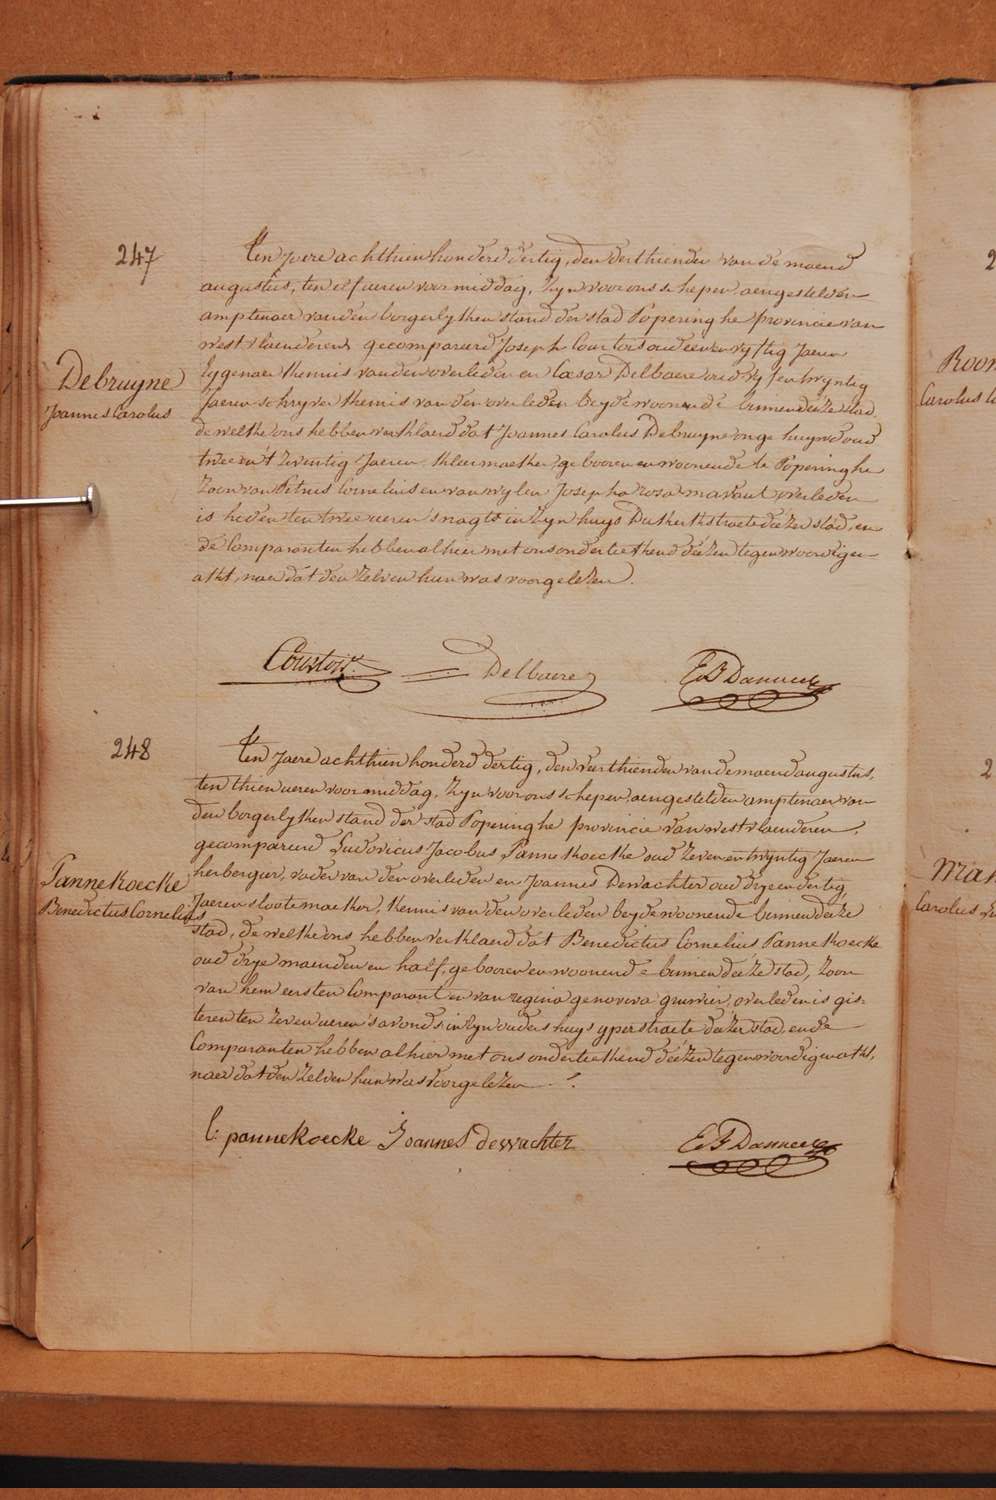 247
Debruyne
Joannes Carolus
Ten Jaere achthien honderd dertig, den derthienden van de maend
augustus, ten elf ueren voormiddag, Zyn voor ons schepen, aengestelden
amptenaer van den borgerlyken stand der stad Poperinghe provincie van
westvlaenderen gecompareerd Joseph Courtois oud eenenvyftig Jaeren
Eygenaer Kennis van den overleden en Caesar Delbaere oud vyfentwyntig
Jaeren schryver kennis van den overleden beyde woonende binnen deeze stad
de welke ons hebben verklaerd dat Joannes Carolus Debruyne ongehuywd oud
twee en 't zeventig Jaeren, kleermaeker, gebooren en woonende te Poperinghe
Zoon van Petrus Cornelius en van wylen Josepha rosa overleden
is heden ten twee ueren s'nagts in Zyn huys straete deezer stad, en
de Comparanten hebben alhier met ons onderteekend deezen tegenwoordigen
akt, naer dat den zelven hun was voorgelezen.
Courtois
Delbaere
248
Pannekoecke
Benedictus Cornelius
Ten Jaere achthien honderd dertig, den veerthienden van de maend augustus,
ten thien ueren voormiddag, Zyn voor ons schepen, aengestelden amptenaer van
den borgerlyken stand der stad Poperinghe provincie van westvlaenderen,
gecompareerd Ludovicus Jacobus Pannekoecke oud zevenentwyntig Jaeren
herbergier, vader van den overleden en Joannes Dewachter oud dryendertig
Jaeren slootemaeker, kennis van den overleden beyde woonende binnen deeze
stad, de welke ons hebben verklaerd dat Benedictus Cornelius Pannekoecke
oud drye maenden en half, gebooren en woonende binnen deeze stad, zoon
van hem eersten Comparant en van regina genoveva overleden is gis-
teren ten zeven ueren s'avonds in Zyn ouders huys yperstraete deezer stad, en de
Comparanten hebben alhier met ons onderteekend deezen tegenwoordigen akt,
naer dat den zelven hun was voorgelezen.
L: pannekoecke Joannes dewachter